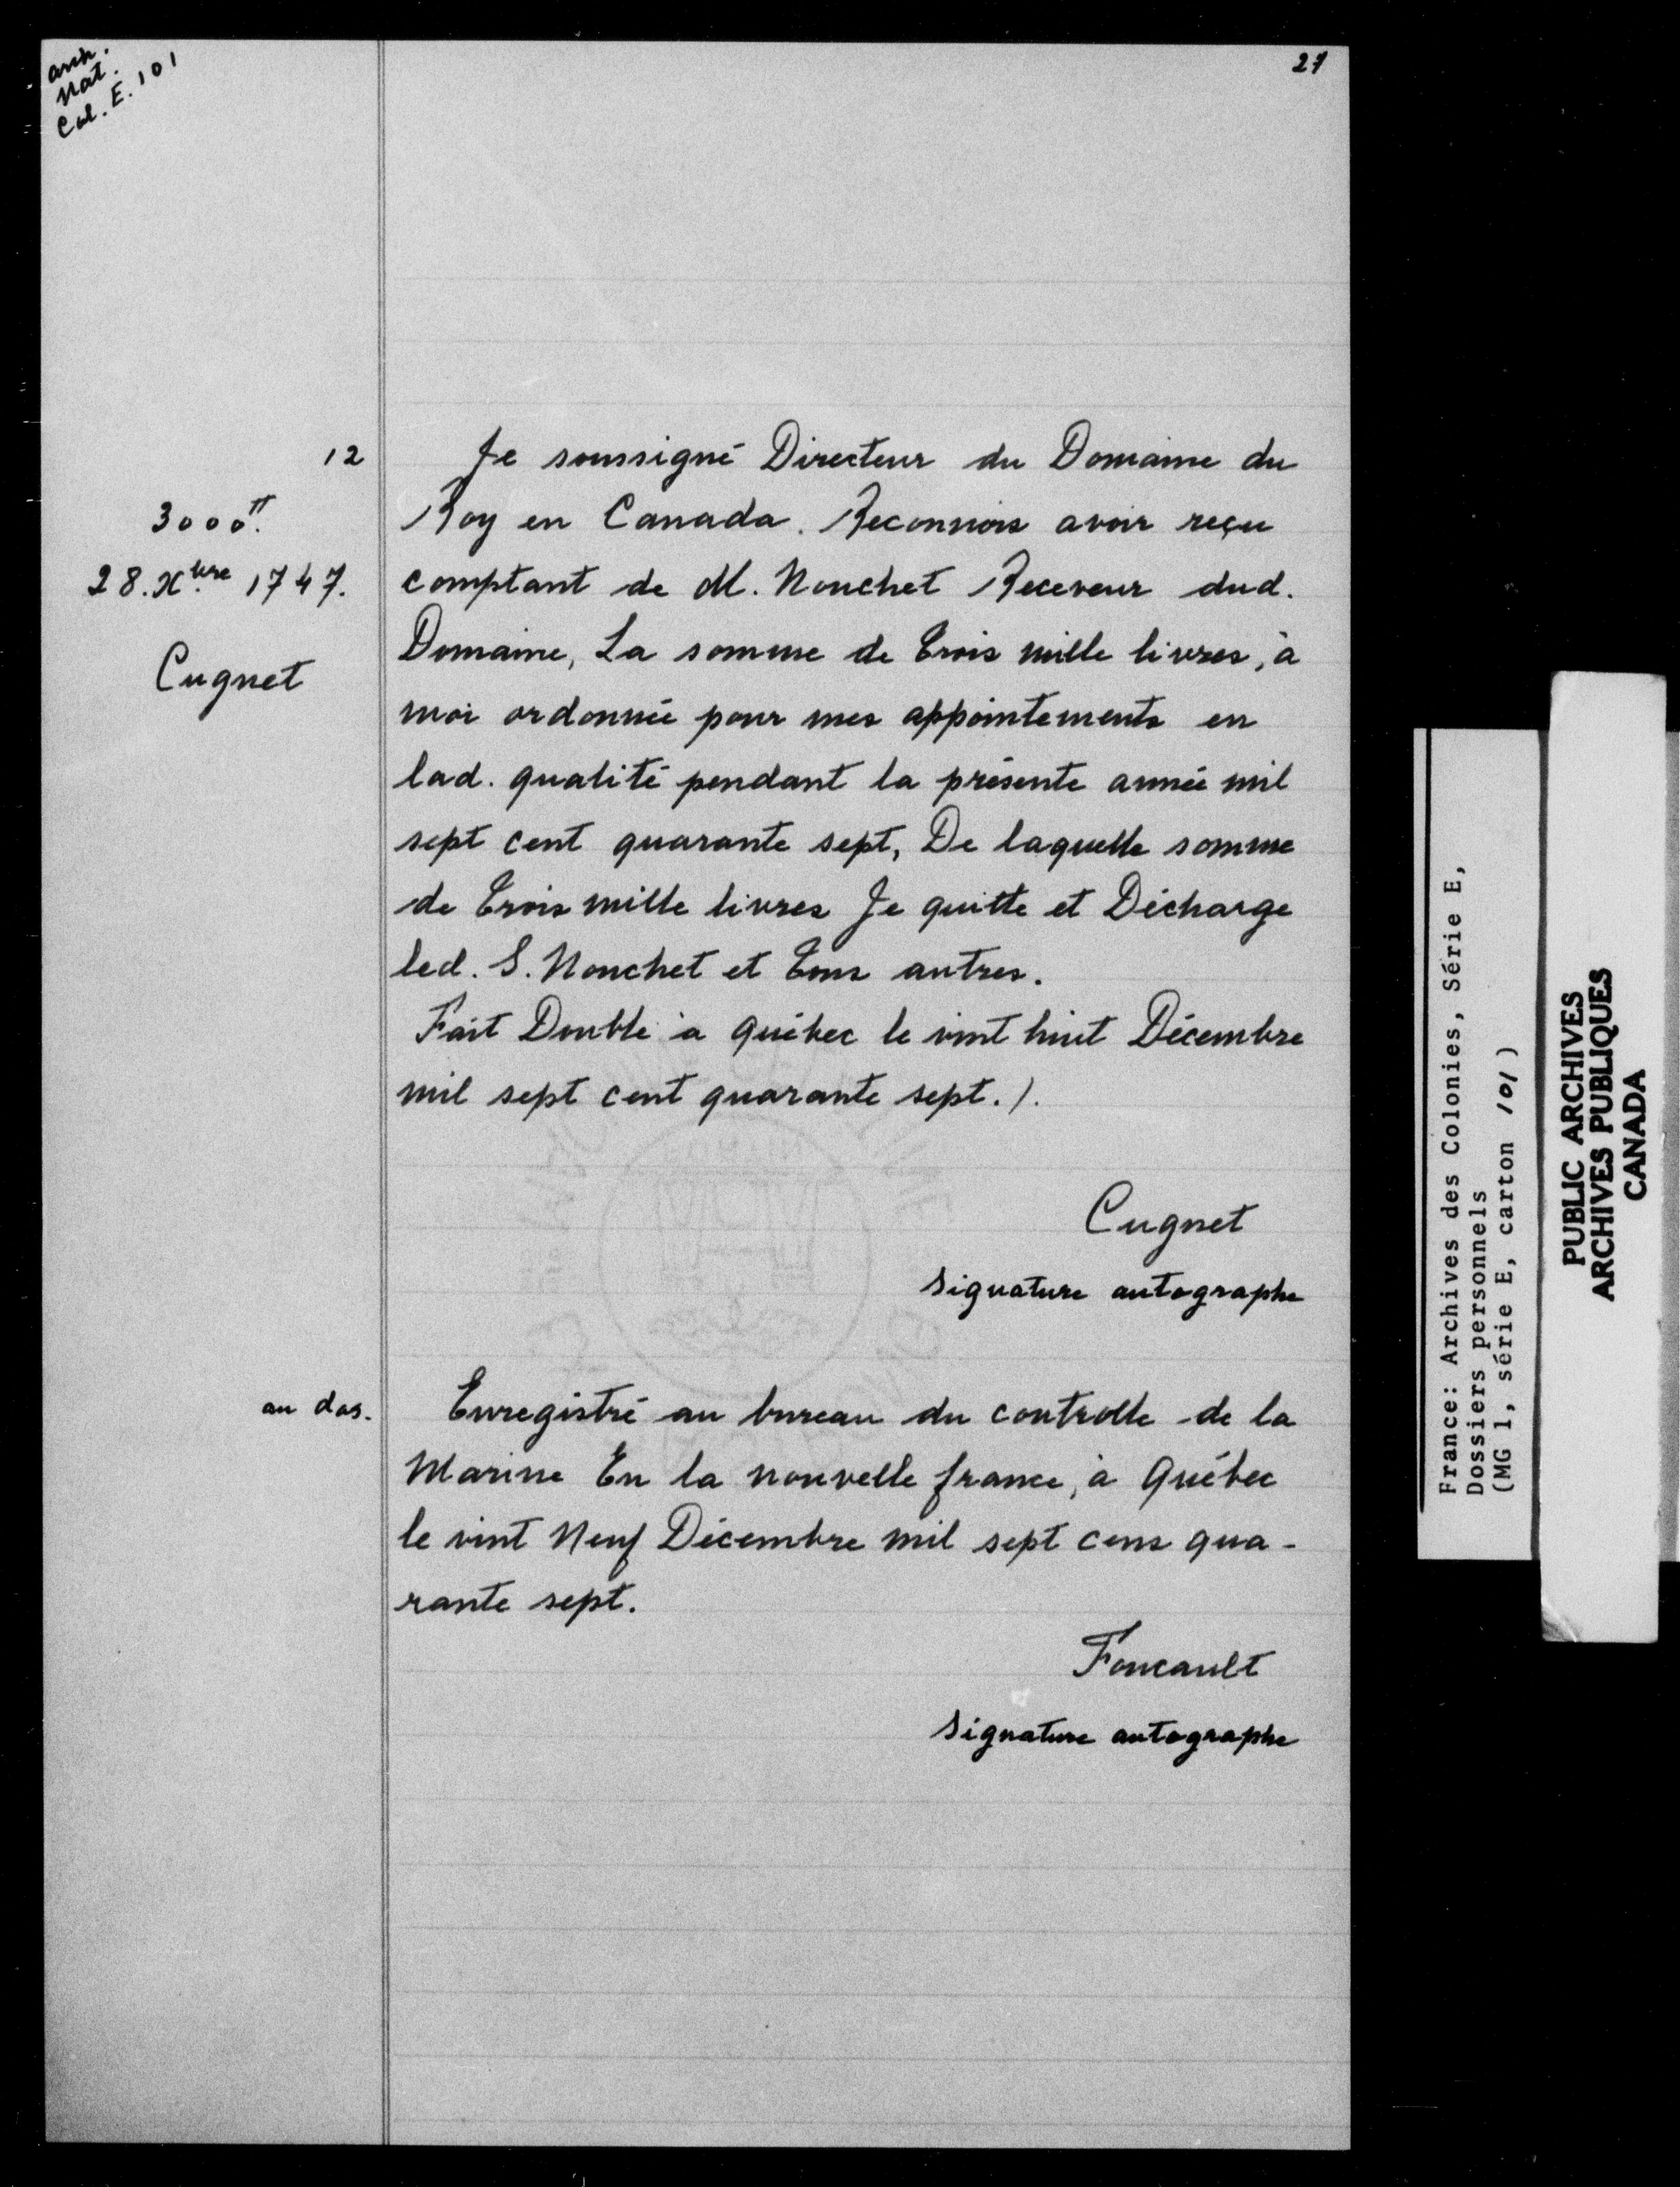 27
arch.
Nat.
Col. E. 101
12
3000ᵗᵗ.
28. Xbre 1747.
Cugnet
Je soussigné Directeur du Domaine du
Roy en Canada. Reconnois avoir reçu
comptant de M. Nouchet Receveur dud.
Domaine, La somme de Trois mille livres, à
moi ordonnée pour mes appointements en
lad. qualité pendant la présente année mil
sept cent quarante sept, De laquelle somme
de Trois mille livres Je quitte et Décharge
led. S. Nouchet et Tous autres.
Fait Double à Québec le vint huit Décembre
mil sept cent quarante sept. /.
Cugnet
signature autographe
au dos.
Enregistré au bureau du controlle de la
Marine En la nouvelle france, à Québec
le vint Neuf Décembre mil sept cens qua-
rante sept.
Foucault
signature autographe
France: Archives des Colonies, Série E,
Dossiers personnels
(MG 1, série E, carton 101)
PUBLIC ARCHIVES
ARCHIVES PUBLIQUES
CANADA